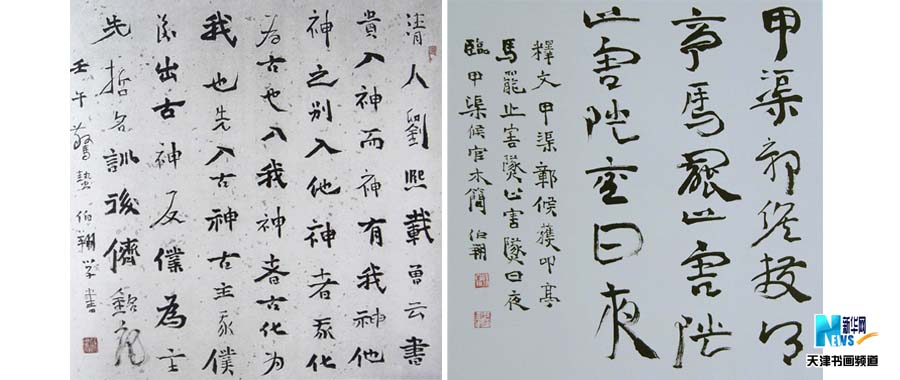 清人劉熙載曾云書
貴入神而神有我神他
神之別入他神者我化
為古也入我神者古化為
我也先入古神古主我僕
後出古神反僕為主
先哲名訓後儕銘
壬午驚蟄伯翔學書
甲渠鄣候獲叩
亭馬罷止害隧
止害隧曰夜
釋文甲渠鄣候獲叩亭
馬罷止害隧止害隧曰夜
臨甲渠候官木簡 伯翔
新华网
NEWS
天津书画频道